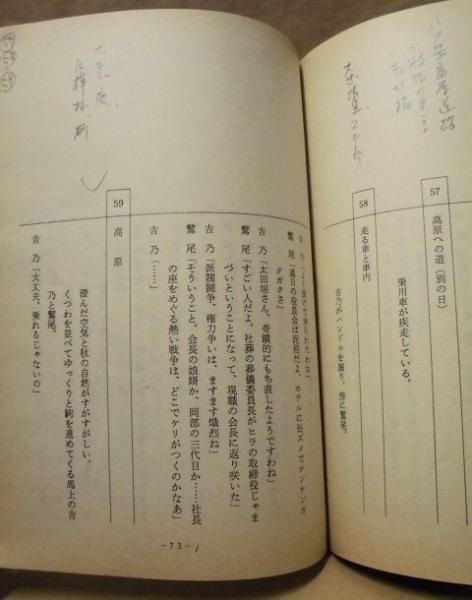 57 高原への道(別の日)
乗用車が疾走している。
58 走る車と車内
吉乃がハンドルを握り、傍に鷲尾。
吉乃「よく抜けて来られたわね」
鷲尾「連日の役員会は沈滞だよ、ホテルに缶ズメでケンケンガ
クガクさ」
吉乃「太田垣さん、奇蹟的にもち直したようですわね」
鷲尾「すごい人だよ。社葬の葬儀委員長がヒラの取締役じゃま
づいということになって、現職の会長に返り咲いた」
吉乃「派閥闘争、権力争いは、ますます熾烈ね」
鷲尾「そういうこと。会長の娘婿か、岡部の三代目か……社長
の座をめぐる熱い戦争は、どこでケリがつくのかなあ」
吉乃「……」
59 高原
澄んだ空気と秋の自然がすがすがしい。
くつわを並べてゆっくりと駒を進めてくる馬上の吉
乃と鷲尾。
吉乃「大丈夫、乗れるじゃないの」
－73－